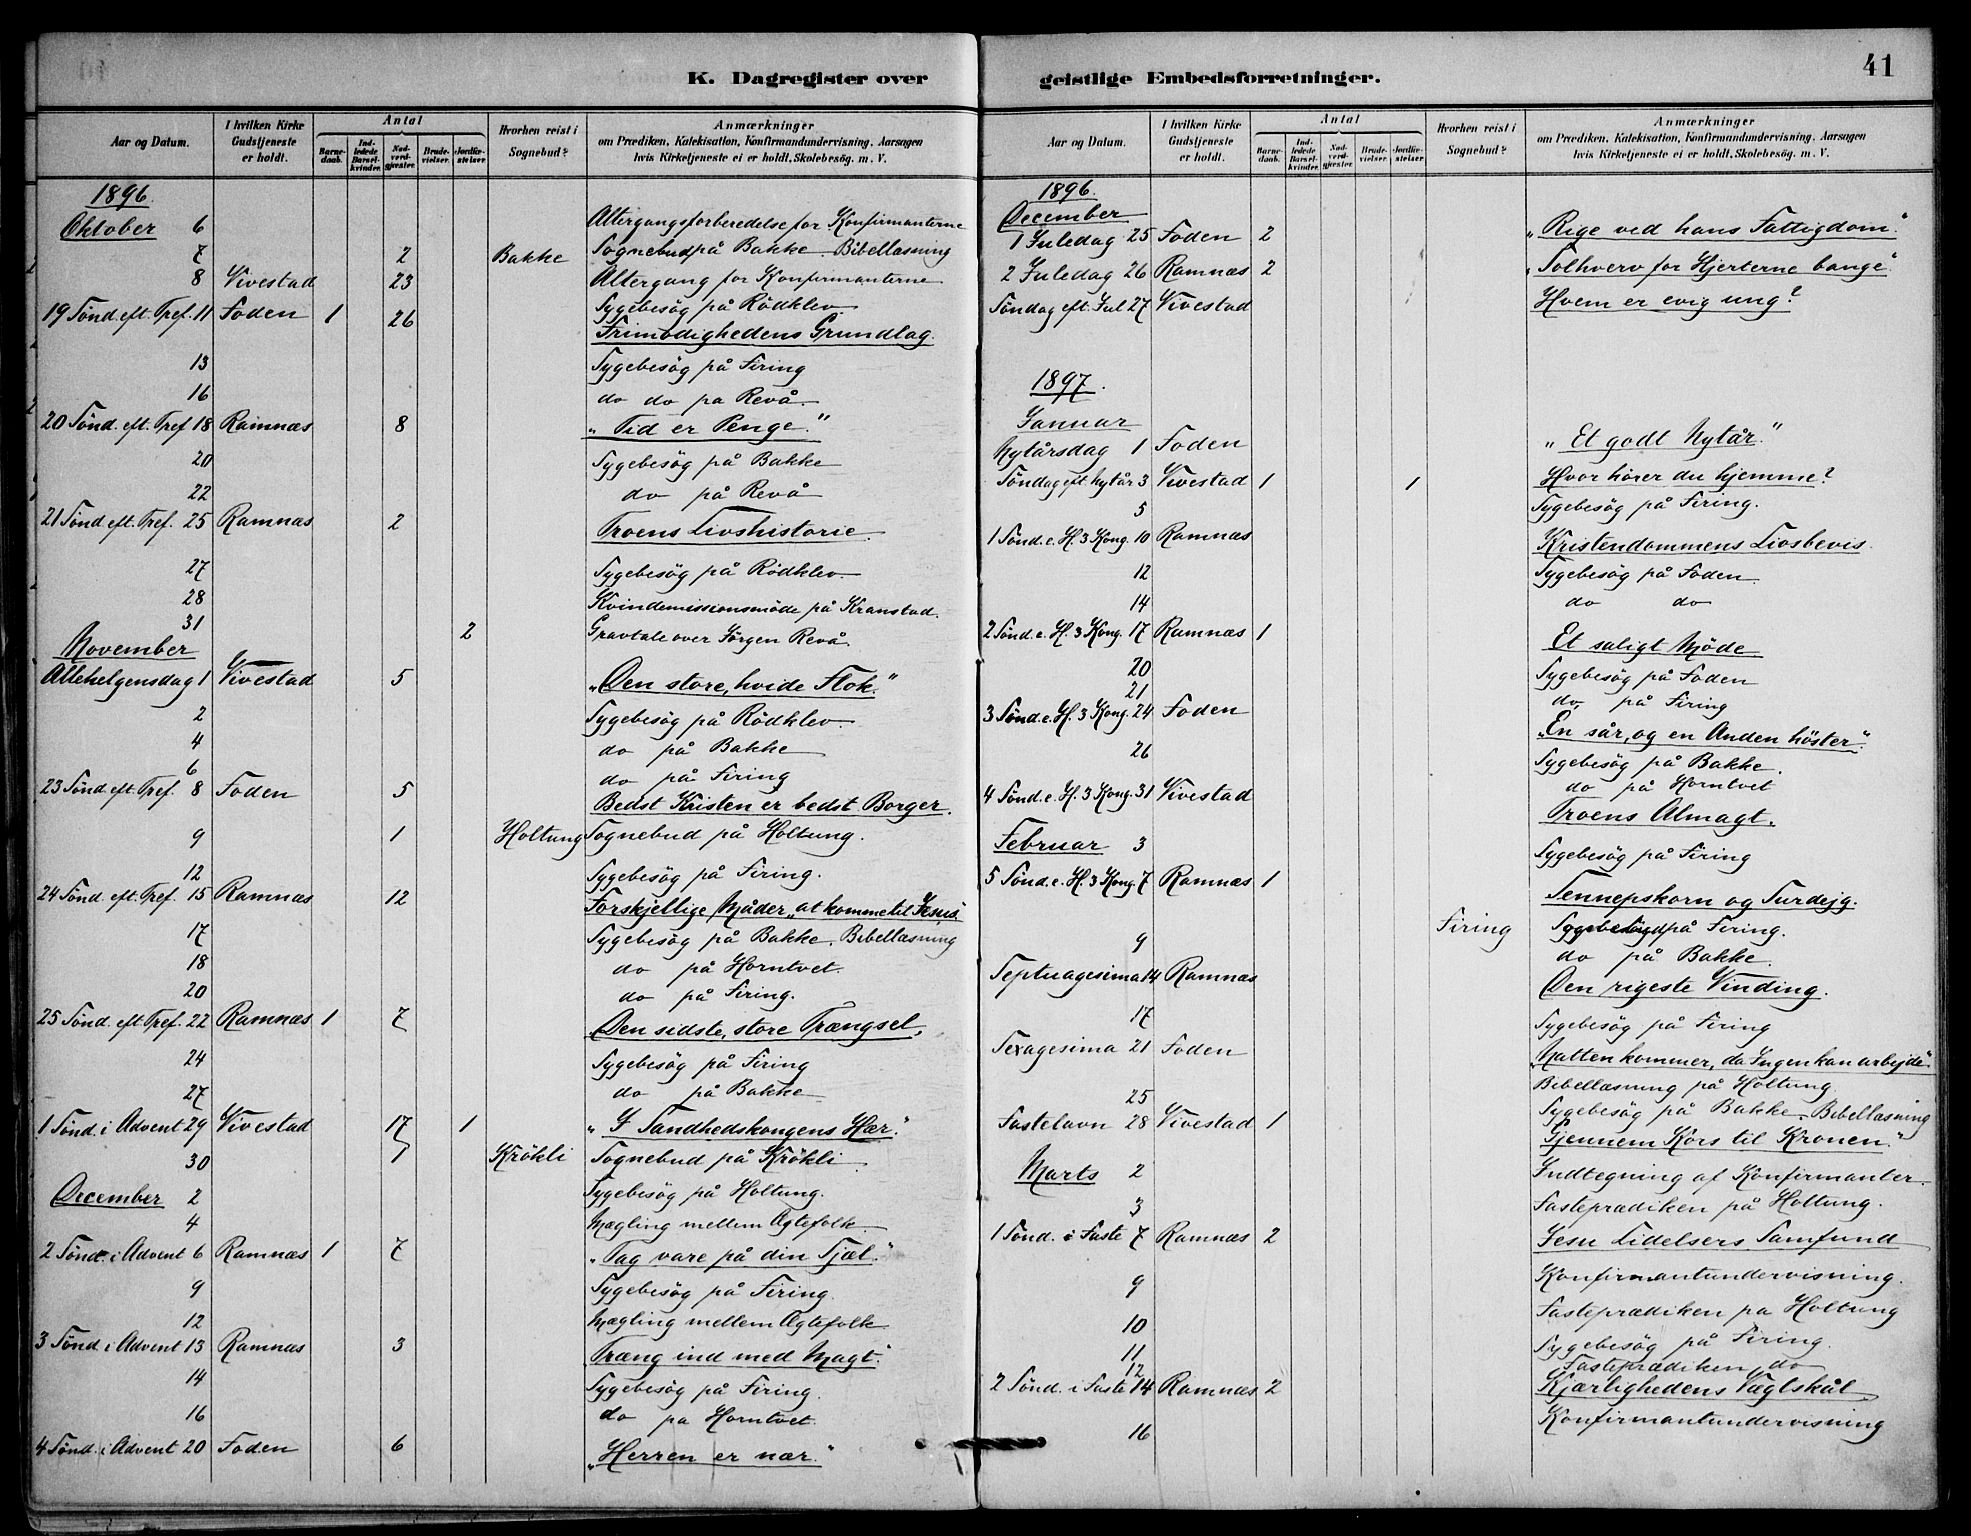 K. Dagregister over
Aar og Datum. I hvilken Kirke Gudstjeneste er holdt. Antal Barne-daab. Ind-ledede Barsel-kvinder. Nad-verd-gjester. Brude-vielser. Jordfæ-stelser. Hvorhen reist i Sognebud? Anmærkninger om Prædiken, Katekisation, Konfirmandundervisning, Aarsagen hvis Kirketjeneste ei er holdt, Skolebesøg. m. V.
1896.
Oktober 6 Altergangsforberedelse for Konfirmanterne
7 2 Bakke Sognebud på Bakke. Bibellæsning
8 Vivestad 23 Altergang for Konfirmanterne
Sygebesög på Rödklev.
19 Sønd. eft. Tref. 11 Foden 1 26 Frimodighedens Grundlag.
13 Sygebesög på Firing
16 do do pa Revå.
20 Sønd. eft. Tref 18 Ramnæs 8 "Tid er Penge."
20 Sygebesög på Bakke
22 do på Revå
21 Sønd eft. Tref. 25 Ramnæs 2 Troens Livshistorie.
27 Sygebesög på Rödklev.
28 Kvindemissionsmöde på Kranstad.
31 2 Gravtale over Jörgen Revå.
November
Allehelgensdag 1 Vivestad 5 "Den store, hvide Flok."
2 Sygebesög på Rödklev.
4 do på Bakke
6 do på Firing
23 Sønd eft. Tref. 8 Foden 5 Bedst Kristen er bedst Borger.
9 1 Holtung Sognebud på Holtung.
12 Sygebesög på Firing.
24 Sønd. eft. Tref. 15 Ramnæs 12 Forskjellige Måder "at komme til Jesus".
17 Sygebesög på Bakke. Bibellæsning
18 do på Horntvet.
20 do på Firing.
25 Sønd. eft Tref. 22 Ramnæs 1 7 Den sidste, store Trængsel.
24 Sygebesög på Firing
27 do på Bakke
1 Sønd. i Advent 29 Vivestad 17 1 "I Sandhedskongens Hær."
30 1 Krökli Sognebud på Krökli
December 2 Sygebesög på Holtung.
4 Mægling mellem Ægtefolk
2 Sønd. i Advent 6 Ramnæs 1 7 "Tag vare på din Sjæl."
9 Sygebesög på Firing.
12 Mægling mellem Ægtefolk
3 Sønd. i Advent 13 Ramnæs 3 Træng ind med Magt.
14 Sygebesög på Firing.
16 do pa Horntvet.
4 Sønd. i Advent 20 Foden 6 "Herren er nær."
geistlige Embedsforretninger.
41
Aar og Datum. I hvilken Kirke Gudstjeneste er holdt. Antal Barne-daab. Ind-ledede Barsel-kvinder. Nad-verd-gjester. Brude-vielser. Jordfæ-stelser Hvorhen reist i Sognebud? Anmærkninger om Prædiken, Katekisation, Konfirmandundervisning, Aarsagen hvis Kirketjeneste ei er holdt, Skolebesøg. m. V.
1896.
December
1 Juledag 25 Foden 2 "Rige ved hans Fattigdom."
2 Juledag 26 Ramnæs 2 "Solhverv for Hjerterne bange".
Søndag eft. Jul 27 Vivestad Hvem er evig ung?
1897.
Januar
Nytårsdag 1 Foden "Et godt Nytår."
Søndag eft Nytår 3 Vivestad 1 1 Hvor hører du hjemme?
5 Sygebesög på Firing.
1 Sønd. e. H. 3 Kong. 10 Ramnæs Kristendommens Livsbevis.
12 Sygebesög på Foden
14 do do
2 Sønd. e. H. 3 Kong. 17 Ramnæs 1 Et saligt Möde
20 Sygebesög på Foden
21 do på Firing
3 Sønd. e. H. 3 Kong. 24 Foden "En sår, og en Anden höster".
26 Sygebesög på Bakke.
do på Horntvet
4 Sønd. e. H. 3 Kong. 31 Vivestad Troens Almagt.
Februar 3 Sygebesög på Firing
5 Sønd. e. H. 3 Kong. 7 Ramnæs 1 Sennepskorn og Surdejg.
9 Firing på Firing.
do på Bakke.
Septuagesima 14 Ramnæs Den rigeste Vinding.
17 Sygebesög på Firing
Sexagesima 21 Foden "Natten kommer, da Ingen kan arbejde".
25 Bibellæsning på Holtung.
Sygebesög på Bakke. Bibellæsning
Fastelavn 28 Vivestad 1 Gjennem Kors til Kronen."
Marts 2 Indtegning af Konfirmanter.
3 Fasteprædiken på Holtung.
1 Sønd. i Faste 7 Ramnæs 2 Jesu Lidelsers Samfund
9 Konfirmantundervisning.
10 Fasteprædiken pa Holtung
11 Sygebesög på Firing.
12 Fasteprædiken do
2 Sønd. i Faste 14 Ramnæs 2 Kjærlighedens Vægtskål
16 Konfirmantundervisning